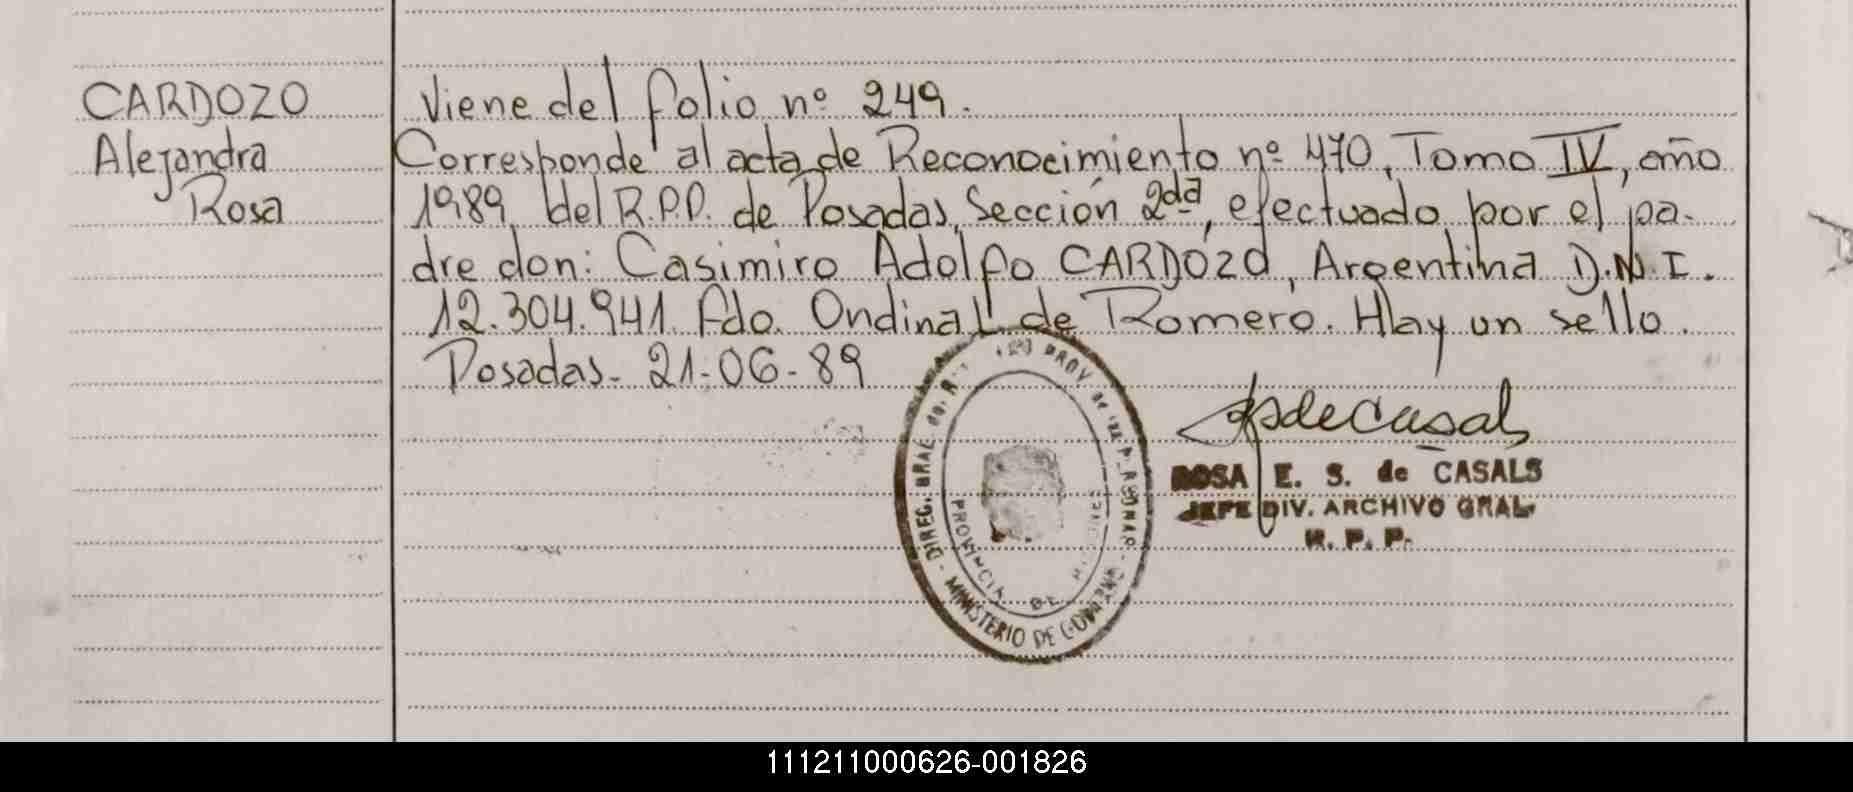 CARDOZO
Alejandra
Rosa
Viene del folio nº 249.
Corresponde al acta de Reconocimiento nº 470, Tomo IV, año
1989 del R.P.P. de Posadas, Sección 2da, efectuado por el pa-
dre don: Casimiro Adolfo CARDOZO, Argentina D.N.I.
12.304.941. Fdo. Ondina L. de Romero. Hay un sello.
Posadas- 21-06-89
ROSA E. S. de CASALS
JEFE DIV. ARCHIVO GRAL.
R. P. P.
DIREC. GRAL. del R PROV. de las PERSONAS - MINISTERIO DE GOBIERNO -
PROVINCIA DE MISIONES
111211000626-001826